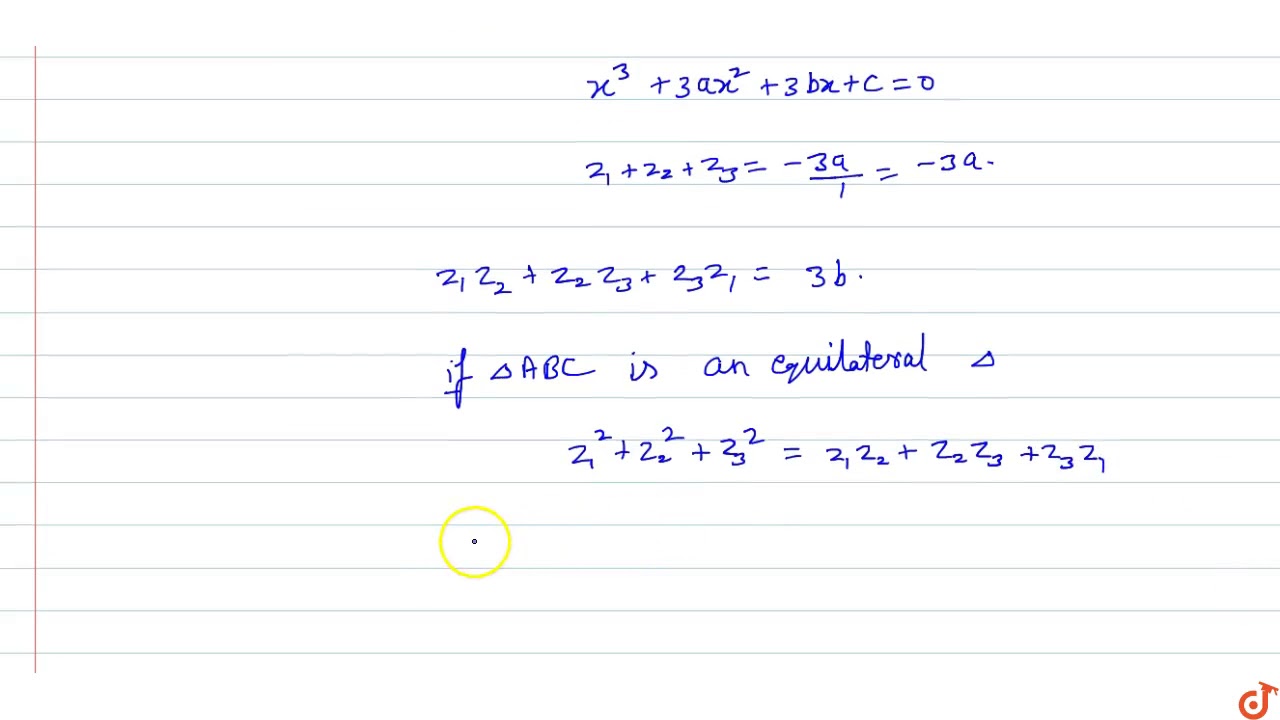 x³ + 3ax² + 3bx + c = 0
z₁ + z₂ + z₃ = -3a/1 = -3a.
z₁z₂ + z₂z₃ + z₃z₁ = 3b.
if △ABC is an equilateral △
z₁² + z₂² + z₃² = z₁z₂ + z₂z₃ + z₃z₁